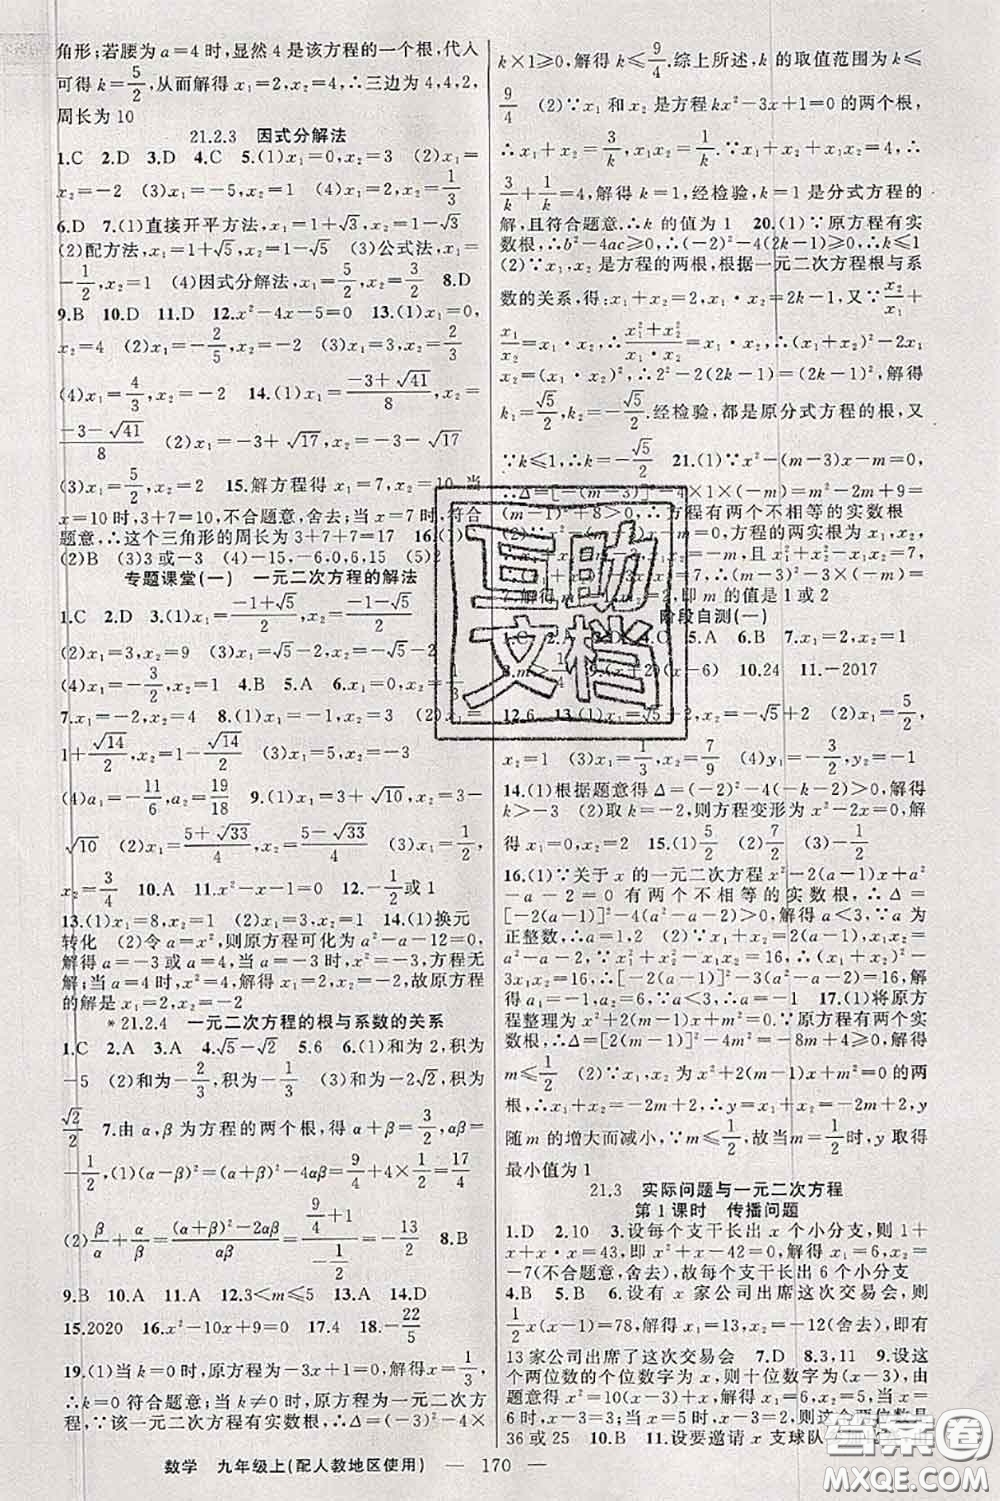 角形;若腰为a=4时,显然4是该方程的一个根,代入
可得k=5/2,从而解得x₁=2,x₂=4,∴三边为4,4,2,
周长为10
21.2.3 因式分解法
1.C 2.D 3.D 4.C 5.(1)x₁=0,x₂=3 (2)x₁=
x₂=-2 (3)x₁=-5,x₂=1 (4)x₁=1,x₂=1/3
6.D 7.(1)直接开平方法,x₁=1+√3,x₂=1-√3
(2)配方法,x₁=1+√5,x₂=1-√5 (3)公式法,x₁=
-1/2,x₂=1 (4)因式分解法,x₁=5/2,x₂=3/2 8.D
9.B 10.D 11.D 12.x²-4x-5=0 13.(1)x₁=0,
x₂=4 (2)x₁=-2/5,x₂=1 (3)x₁=4,x₂=-1
(4)x₁=4/3,x₂=-2 14.(1)x₁=(-3+√41)/8,x₂=
(-3-√41)/8 (2)x₁=-3+√17,x₂=-3-√17
(3)x₁=5/2,x₂=3 15.解方程得x₁=7,x₂=10,当
x=10时,3+7=10,不合题意,舍去;当x=7时,符合
题意,∴这个三角形的周长为3+7+7=17 16.(1)
(2)B (3)3或-3 (4)-15,-6,0,6,15 (5)2
专题课堂(一) 一元二次方程的解法
1.C 2.D 3.(1)x₁=(-1+√5)/2,x₂=(-1-√5)/2
(2)x₁=3,x₂=9 (3)x₁=5/2,x₂=
(4)x₁=-3/2,x₂=1 4.B 5.A 6.x=0或x=
7.x₁=-2,x₂=4 8.(1)x₁=-4,x₂=2 (2)x₁=
1+√14/2,x₂=1-√14/2 (3)x₁=5,x₂=-3
(4)a₁=-11/6,a₂=19/18 9.(1)x₁=3+√10,x₂=3-
√10 (2)x₁=(5+√33)/4,x₂=(5-√33)/4 (3)x₁=1/2,
x₂=3/4 10.A 11.x²-x-1=0 12.-1/2或1
13.(1)x₁=8,x₂=1 (2)x₁=-1,x₂=2 14.(1)换元
转化 (2)令a=x²,则原方程可化为a²-a-12=0,
解得a=-3或a=4,当a=-3时,x²=-3,方程无
解;当a=4时,x²=4,解得x₁=2,x₂=-2,故原方程
的解是x₁=2,x₂=-2
*21.2.4 一元二次方程的根与系数的关系
1.C 2.A 3.A 4.√5-√2 5.6 6.(1)和为2,积为
-5 (2)和为-2/3,积为-1/3 (3)和为-2√2,积为
√2/2 7.由α,β为方程的两个根,得α+β=3/2,αβ=
-1/2,(1)(α-β)²=(α+β)²-4αβ=9/4+4×1/2=17/4
(2)β/α+α/β=((α+β)²-2αβ)/αβ=(9/4+1)/(-1/2)=-13/2 8.B
9.B 10.A 11.A 12.3<m≤5 13.A 14.D
15.2020 16.x²-10x+9=0 17.4 18.-22/5
19.(1)当k=0时,原方程为-3x+1=0,解得x=1/3,
∴k=0符合题意;当k≠0时,原方程为一元二次方
程,∵该一元二次方程有实数根,∴Δ=(-3)²-4×
k×1≥0,解得k≤9/4.综上所述,k的取值范围为k≤
9/4 (2)∵x₁和x₂是方程kx²-3x+1=0的两个根,
∴x₁+x₂=3/k,x₁x₂=1/k.∵x₁+x₂+x₁x₂=4,∴
3/k+1/k=4,解得k=1,经检验,k=1是分式方程的
解,且符合题意.∴k的值为1 20.(1)∵原方程有实
数根,∴b²-4ac≥0,∴(-2)²-4(2k-1)≥0,∴k≤1
(2)∵x₁,x₂是方程的两根,根据一元二次方程根与系
数的关系,得:x₁+x₂=2,x₁·x₂=2k-1,又∵x₂/x₁+
x₁/x₂=x₁·x₂,∴(x₁²+x₂²)/(x₁·x₂)=x₁·x₂,∴(x₁+x₂)²-2x₁
x₂=(x₁·x₂)²,∴2²-2(2k-1)=(2k-1)²,解得
k₁=√5/2,k₂=-√5/2.经检验,都是原分式方程的根,又
∵k≤1,∴k=-√5/2 21.(1)∵x²-(m-3)x-m=0,
∴Δ=[-(m-3)]²-4×1×(-m)=m²-2m+9=
(m-1)²+8>0,∴方程有两个不相等的实数根
=0,方程的两实根为x₁,x₂,
且x₁²+x₂²-x₁x₂=7
解得m₁=1,m₂=2,即m的值是1或2
阶段自测(一)
4.C 5.A 6.B 7.x₁=2,x₂=1
(x+2)(x-6) 10.24 11.-2017
12.6 13.(1)x₁=√5+2,x₂=-√5+2 (2)x₁=5/2,
x₂=3 (3)x₁=1/3,x₂=7/9 (4)y₁=-1/4,y₂=3/2
14.(1)根据题意得Δ=(-2)²-4(-k-2)>0,解得
k>-3 (2)取k=-2,则方程变形为x²-2x=0,解
得x₁=0,x₂=2 15.(1)5/2 (2)7/2 (3)1/2
16.(1)∵关于x的一元二次方程x²-2(a-1)x+a²
-a-2=0有两个不相等的实数根,∴Δ=
[-2(a-1)]²-4(a²-a-2)>0,解得a<3,∵a为
正整数,∴a=1,2 (2)∵x₁+x₂=2(a-1),x₁x₂=
a²-a-2,∵x₁²+x₂²-x₁x₂=16,∴(x₁+x₂)²-
3x₁x₂=16,∴[-2(a-1)]²-3(a²-a-2)=16,解
得a₁=-1,a₂=6,∵a<3,∴a=-1 17.(1)将原方
程整理为x²+2(m-1)x+m²=0,∵原方程有两个实
数根,∴Δ=[2(m-1)]²-4m²=-8m+4≥0,解得
m≤1/2 (2)∵x₁,x₂为x²+2(m-1)x+m²=0的两
根,∴y=x₁+x₂=-2m+2,∴y=x₁+x₂=-2m+2,y
随m的增大而减小,∵m≤1/2,故当m=1/2时,y取得
最小值为1
21.3 实际问题与一元二次方程
第1课时 传播问题
1.D 2.10 3.设每个支干长出x个小分支,则1+
x+x·x=43,即x²+x-42=0,解得x₁=6,x₂=
-7(不合题意,舍去),故每个支干长出6个小分支
4.B 5.B 6.设有x家公司出席这次交易会,则
1/2x(x-1)=78,解得x₁=13,x₂=-12(舍去),即有
13家公司出席了这次交易会 7.D 8.3,11 9.设这
个两位数的个位数字为x,则十位数字为(x-3),由
题意得x²=10(x-3)+x,解得x₁=6,x₂=5,当x=
6时,x-3=3;当x=5时,x-3=2,则这个两位数是
36或25 10.B 11.设要邀请x支球队
数学 九年级上(配人教地区使用) — 170 —
互助
文档
答案卷
MXQE.COM